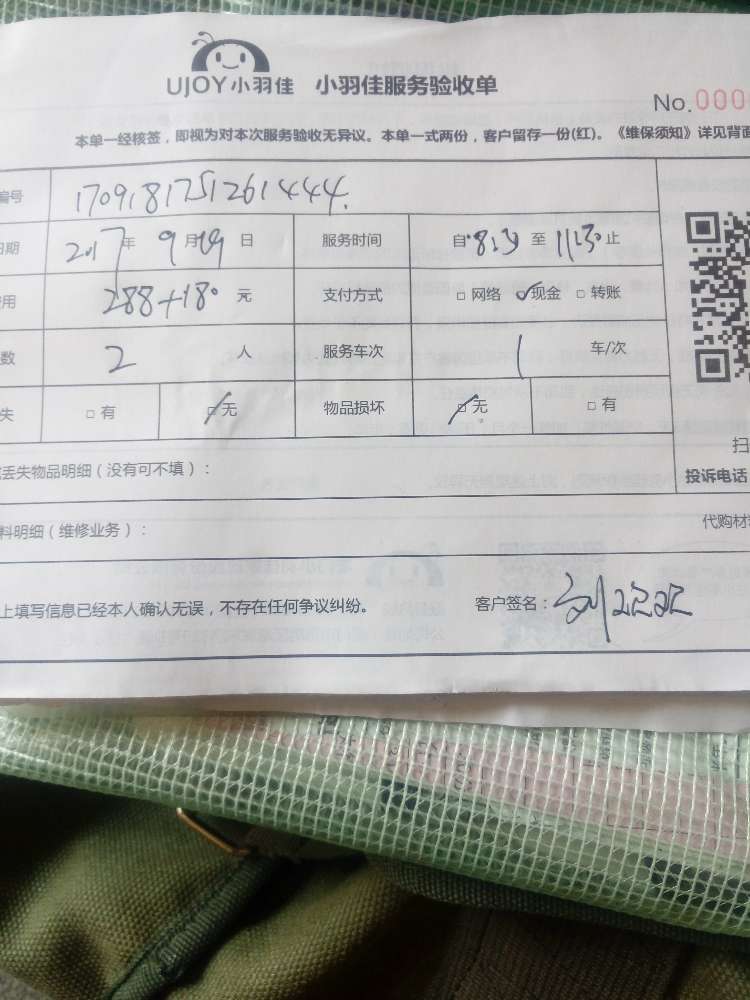 UJOY小羽佳 小羽佳服务验收单
No.000
本单一经核签，即视为对本次服务验收无异议。本单一式两份，客户留存一份(红)。《维保须知》详见背面
编号 1709181751261444
日期 2017年9月19日 服务时间 自8:30至11:30止
用 288+180 元 支付方式 □网络 ✓现金 □转账
数 2 人 服务车次 1 车/次
失 □有 □无 物品损坏 □无 □有
丢失物品明细（没有可不填）：
扫
投诉电话
料明细（维修业务）：
代购材
上填写信息已经本人确认无误，不存在任何争议纠纷。
客户签名：刘